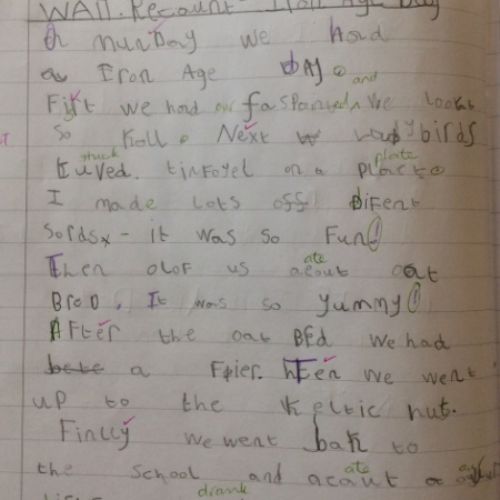 WALT. Recount Iron Age Day
On munDay we had
a Iron Age DAJ and
First we had our faspainted we lookt
so Kall. Next ladybirds
stuck plate
Kuved. tinfoyel on a placte
I made Lots off Difent
sordsx - it was so Fun!
ate
Then olof us acout oat
BreD. It was so yummy!
After the oat BEd we had
bete a Fpier. hTen we went
up to the Keltic hut.
Finlly we went bak to
ate
the school and acaut a
drank